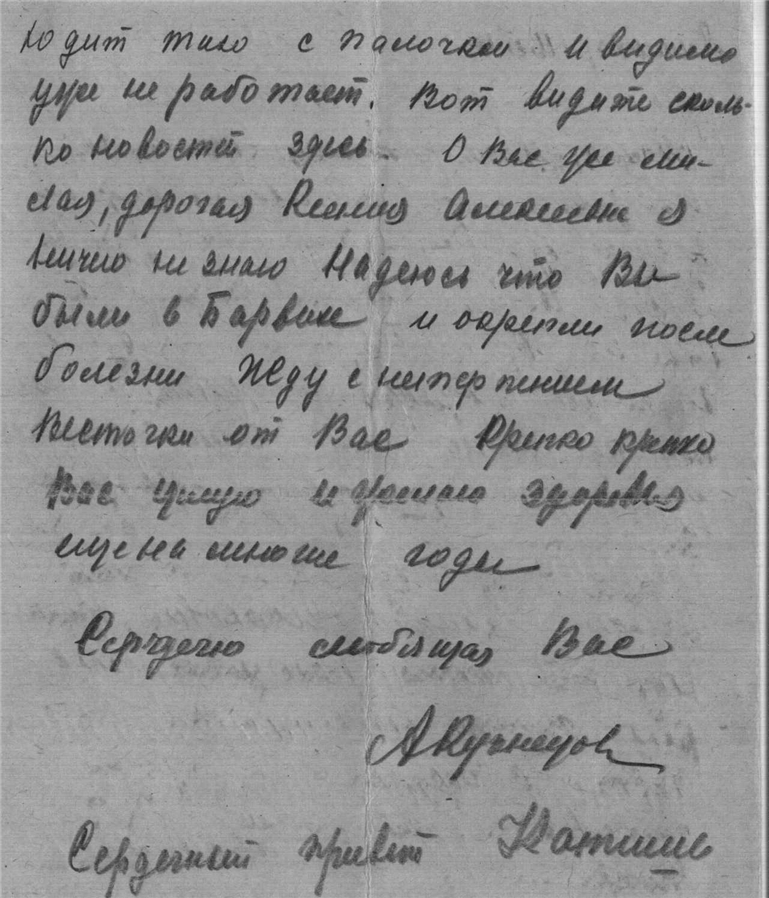 ходит тихо с палочкой и видимо
уже не работает. Вот видите сколь-
ко новостей здесь. О Вас же ми-
лая, дорогая Ксения Алексеевна я
ничего не знаю Надеюсь что Вы
были в Барвихе и окрепли после
болезни Жду с нетерпением
весточки от Вас Крепко крепко
Вас целую и желаю здоровья
еще на многие годы
Сердечно любящая Вас
АКузнецова
Сердечный привет